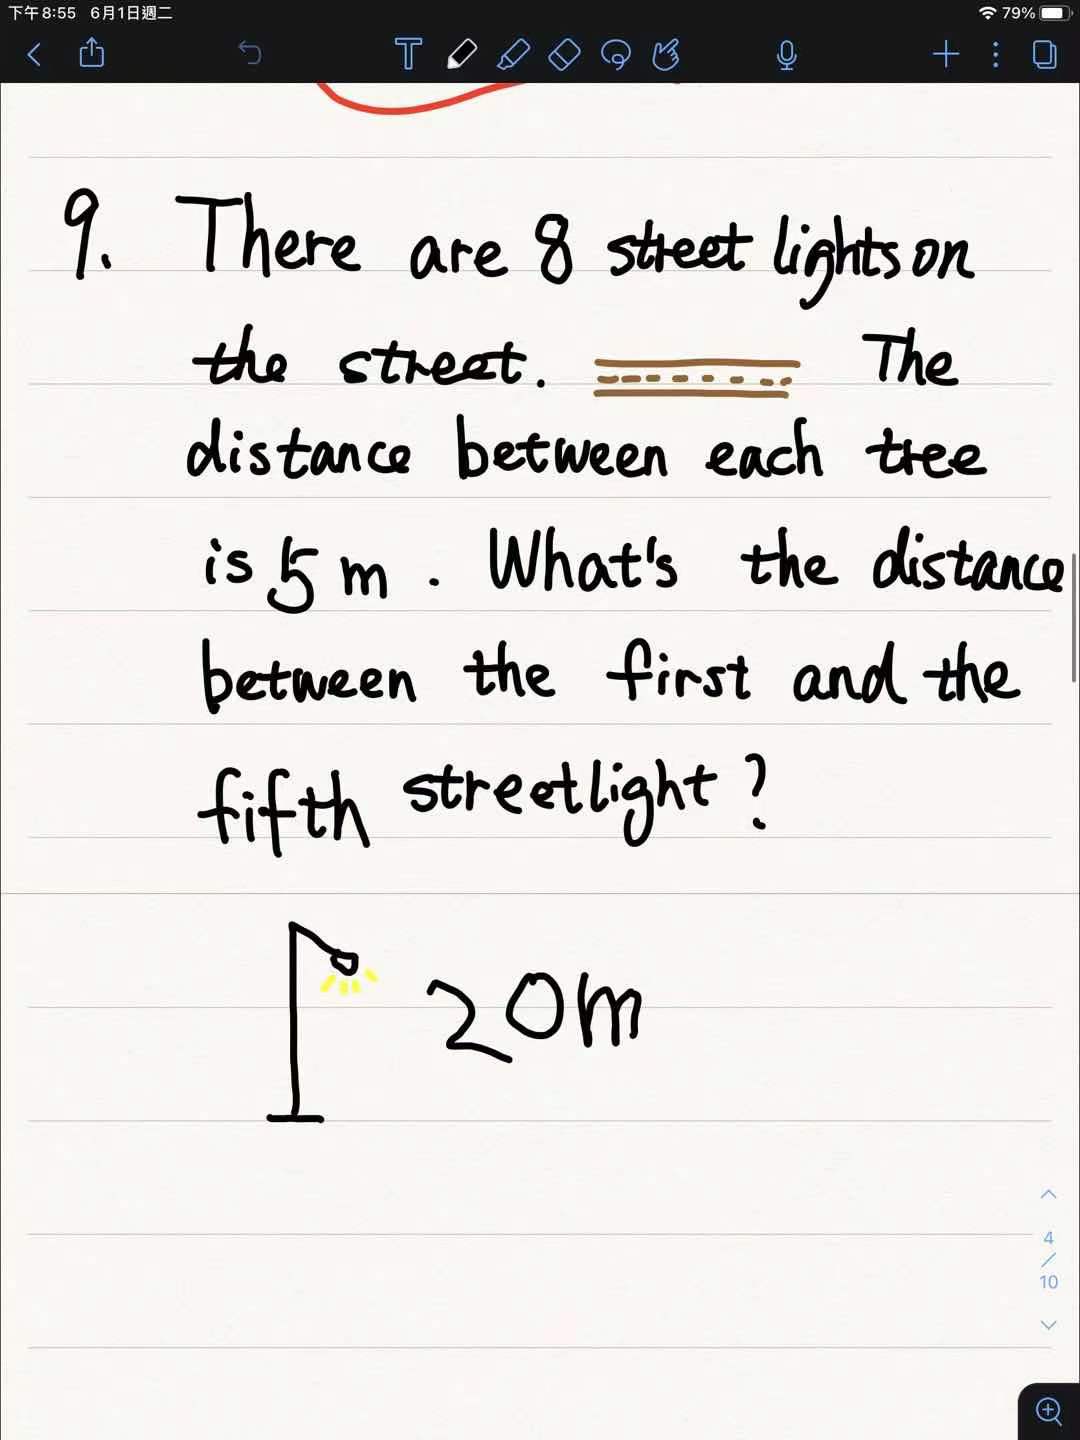 下午8:55 6月1日週二
79%
T
9. There are 8 street lights on
the street. The
distance between each tree
is 5 m. What's the distance
between the first and the
fifth streetlight?
20m
4
/
10